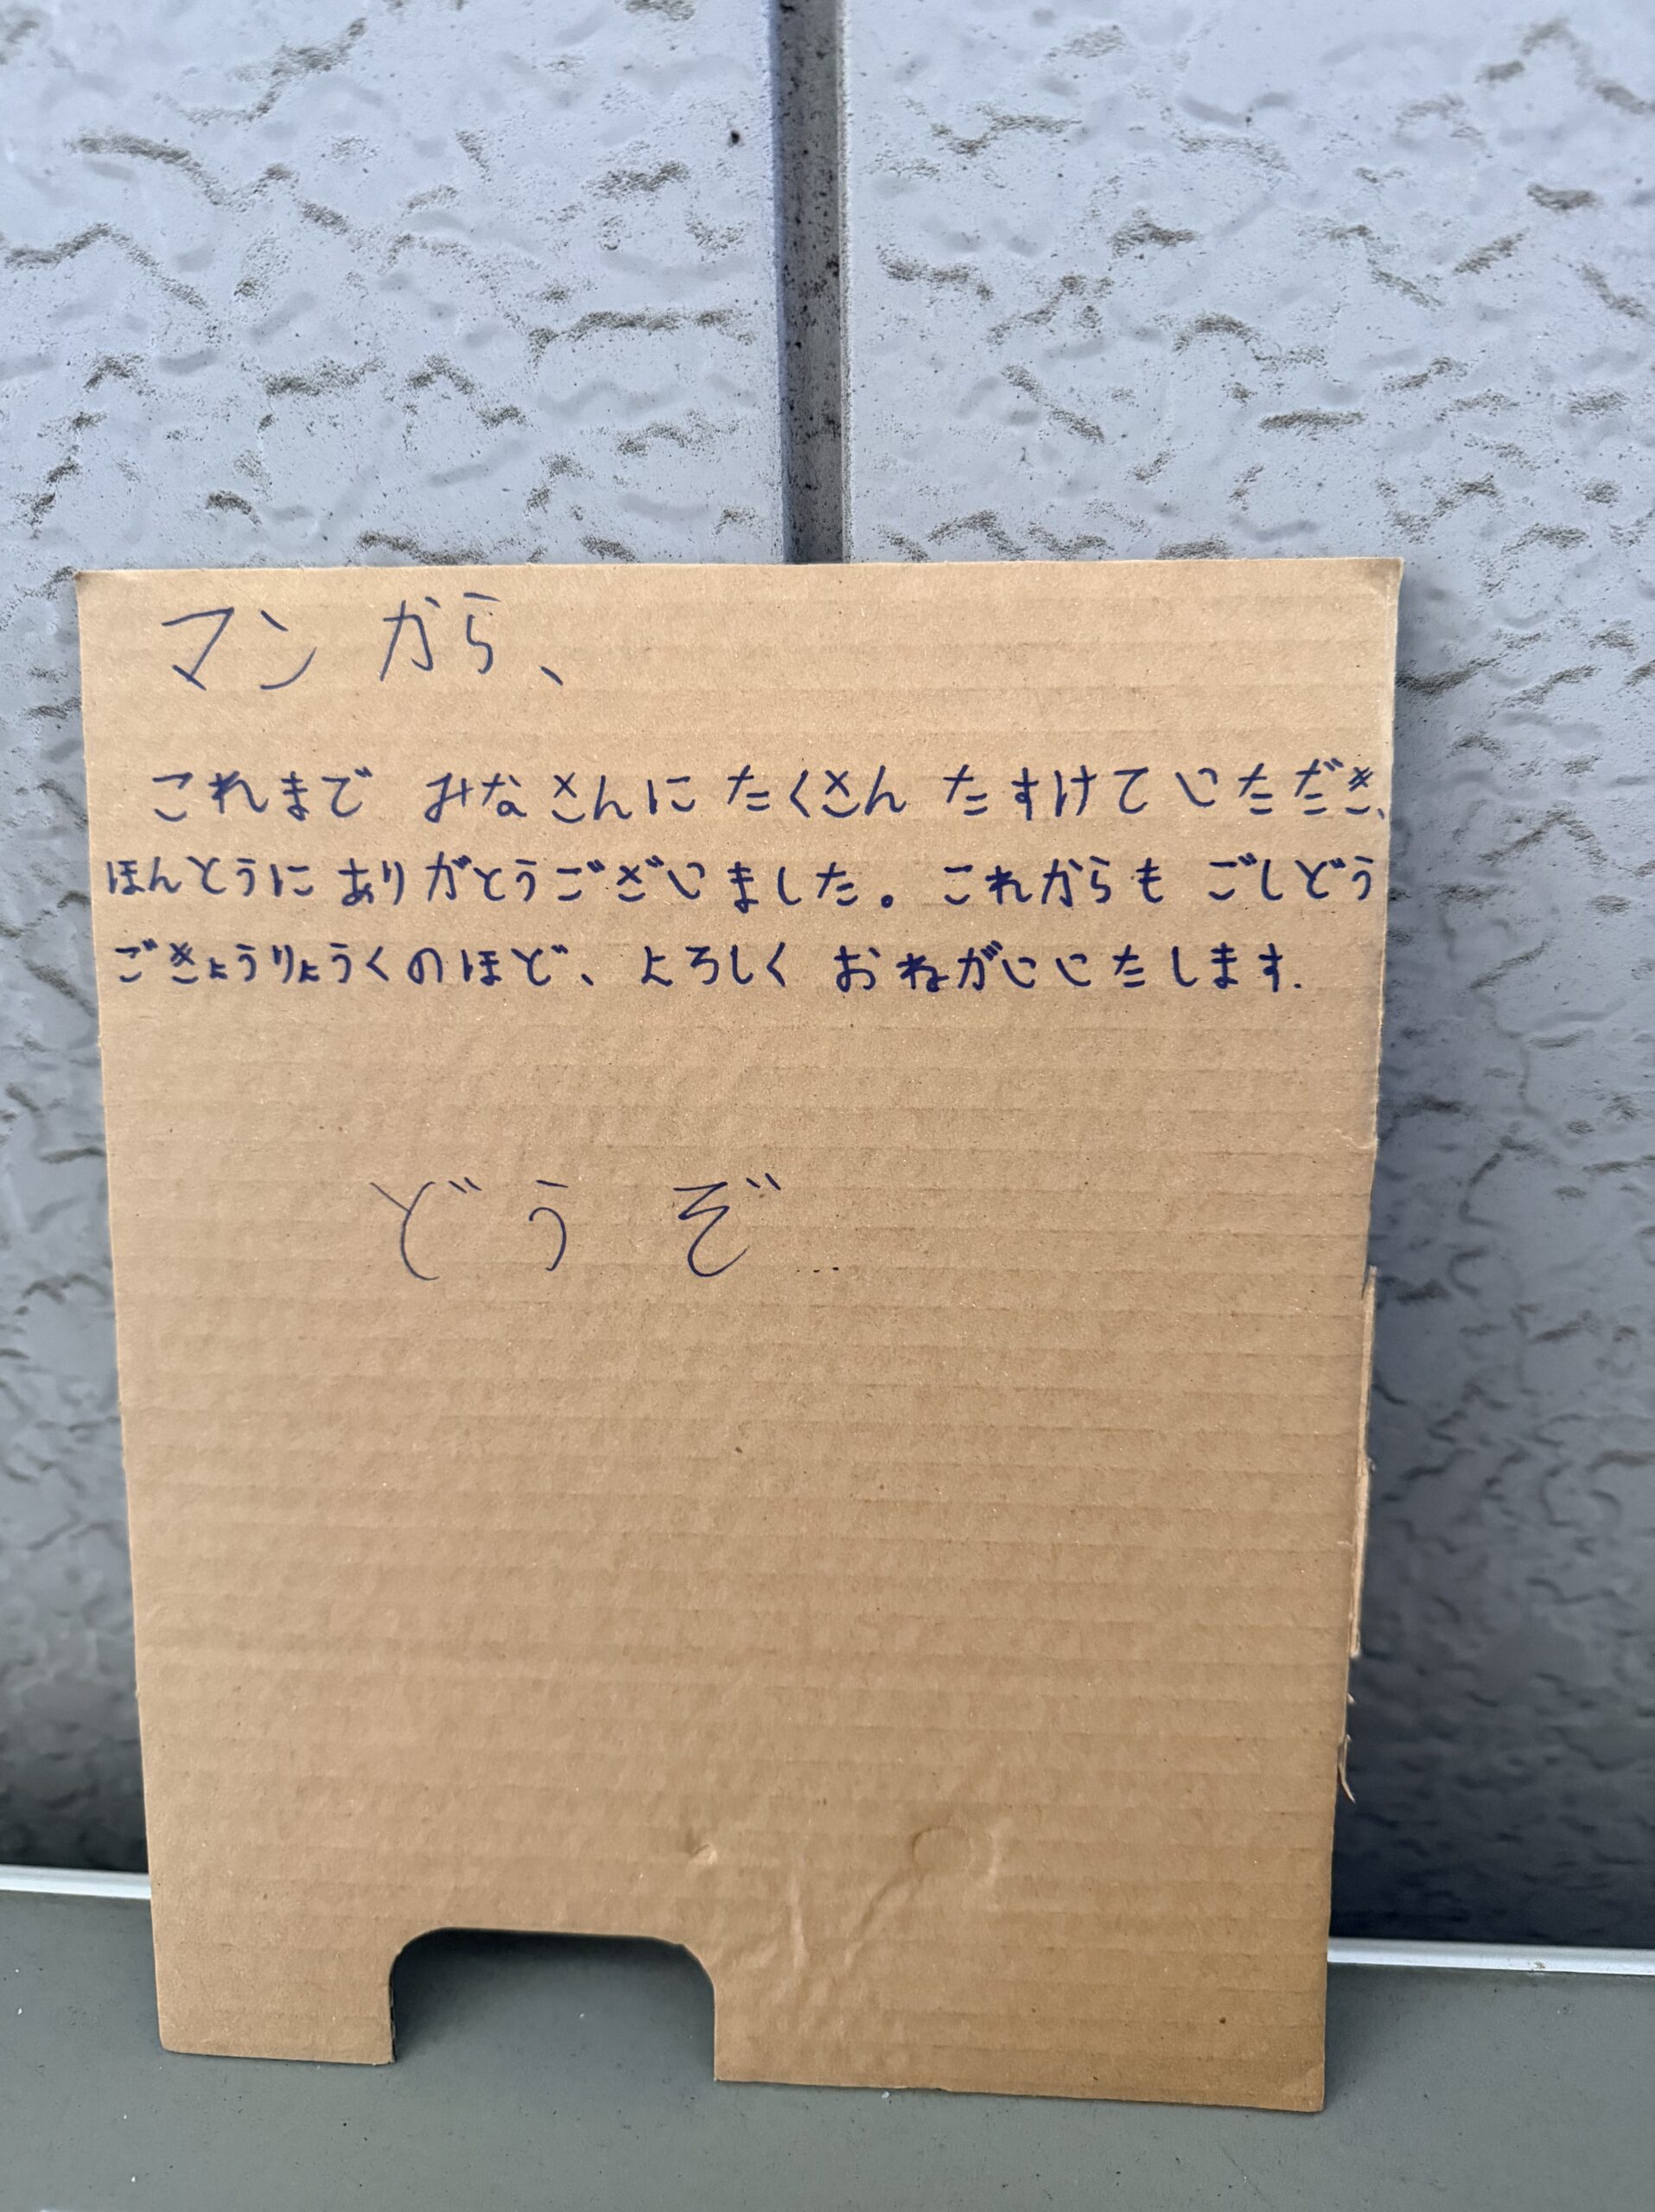 マン から、
これまで みなさんに たくさん たすけて いただき、
ほんとうに ありがとうございました。これからも ごしどう
ごきょうりょうくのほど、よろしく おねがいいたします.
どうぞ...